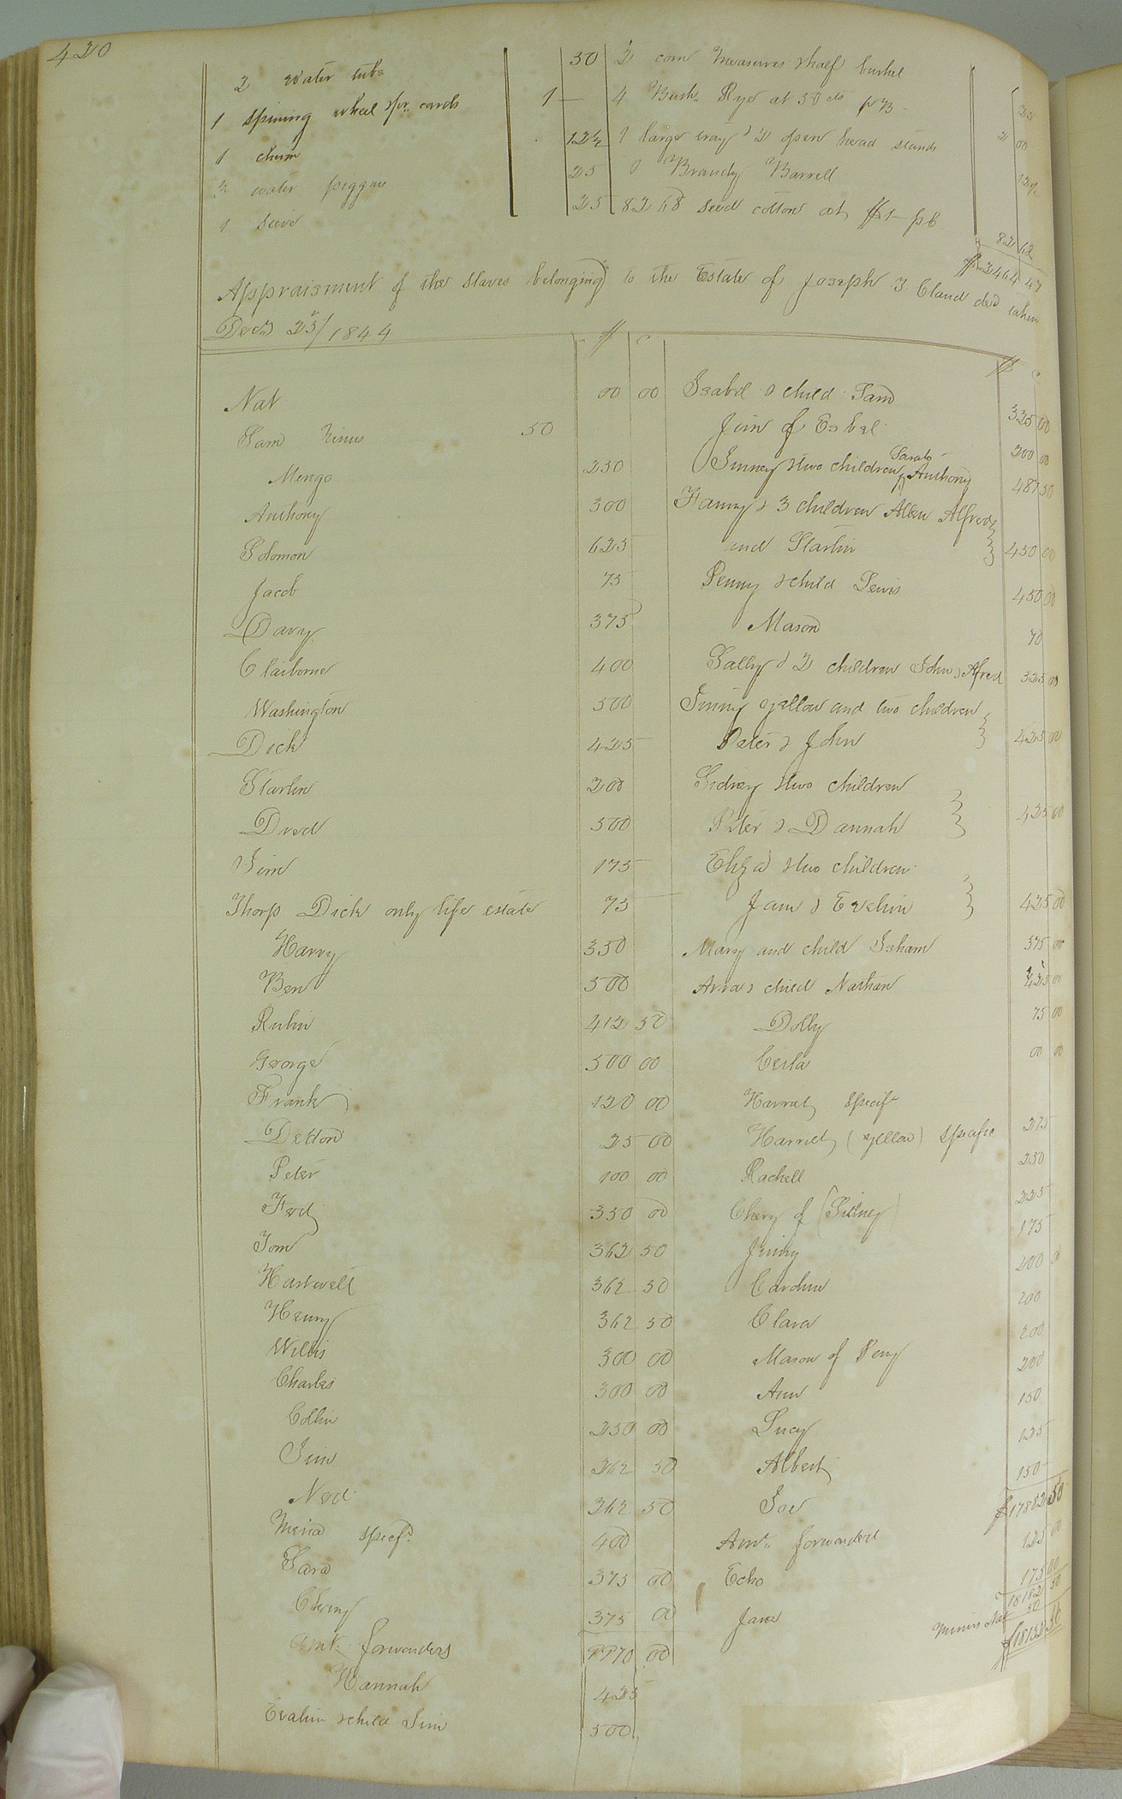 420
2 water tubs 50
1 spining wheel & pr. cards 1 —
1 churn 12½
3 water piggins 25
1 seive 25
2 corn measures & half bushel 25
4 Bush. Rye at 50 cts pr B 2 00
1 large tray & 2 open head stands 12½
1 Brandy Barrell
8268 seed cotton at $1 pr C 82 68
$2464 47
Appraisment of the slaves belonging to the Estate of Joseph T Claud decd taken
Decr 25/1844
$ c
Nat 00 00
Sam minus 50
Mengo 250
Anthony 300
Solomon 625
Jacob 75
Davy 375
Claiborne 400
Washington 500
Dick 425
Starlin 200
Dred 500
Jim 175
Thorp Dick only life estate 75
Harry 350
Ben 500
Rubin 412 50
George 500 00
Frank 120 00
Deldon 25 00
Peter 100 00
Fred 350 00
Tom 362 50
Hartwell 362 50
Henry 362 50
Willis 300 00
Charles 300 00
Collin 250 00
Jim 262 50
Ned 362 50
specf. 400
Sara 375 00
Cherry 375 00
Amt. forwarders 00
Hannah 425
Evalin & child Jim 500
$ c
Isabel & child Sam 325 00
Jim of Esbel 200 00
Jinney & two children, Sarah & Anthony 487 50
Fanny & 3 children Allen Alfred
and Starlin 450 00
Penny & child Lewis 450 00
Mason 70
Sally & 2 children John & Alfred 325 00
Jinny yellow and two children
Peter & John 425 00
Sidney & two children
Peter & Dannah 425 00
Eliza & two children
Jam & Evelin 425 00
Mary and child Isham 375 00
Ann & child Nathan 425 00
Dolly 75 00
Cerla 00 00
Harriet specif
Harriet (yellow) specific 275
Rachell 250
Chery of (Sidney) 225
Jinny 175
Carolin 200
Clara 200
Mason of Peny 200
Ann 200
Lucy 150
Albert 125
Joe 150
Amt. forwarded $17802 50
Echo 125 00
Jane 175 00
18102 50
minus Nat 50
$18152 50